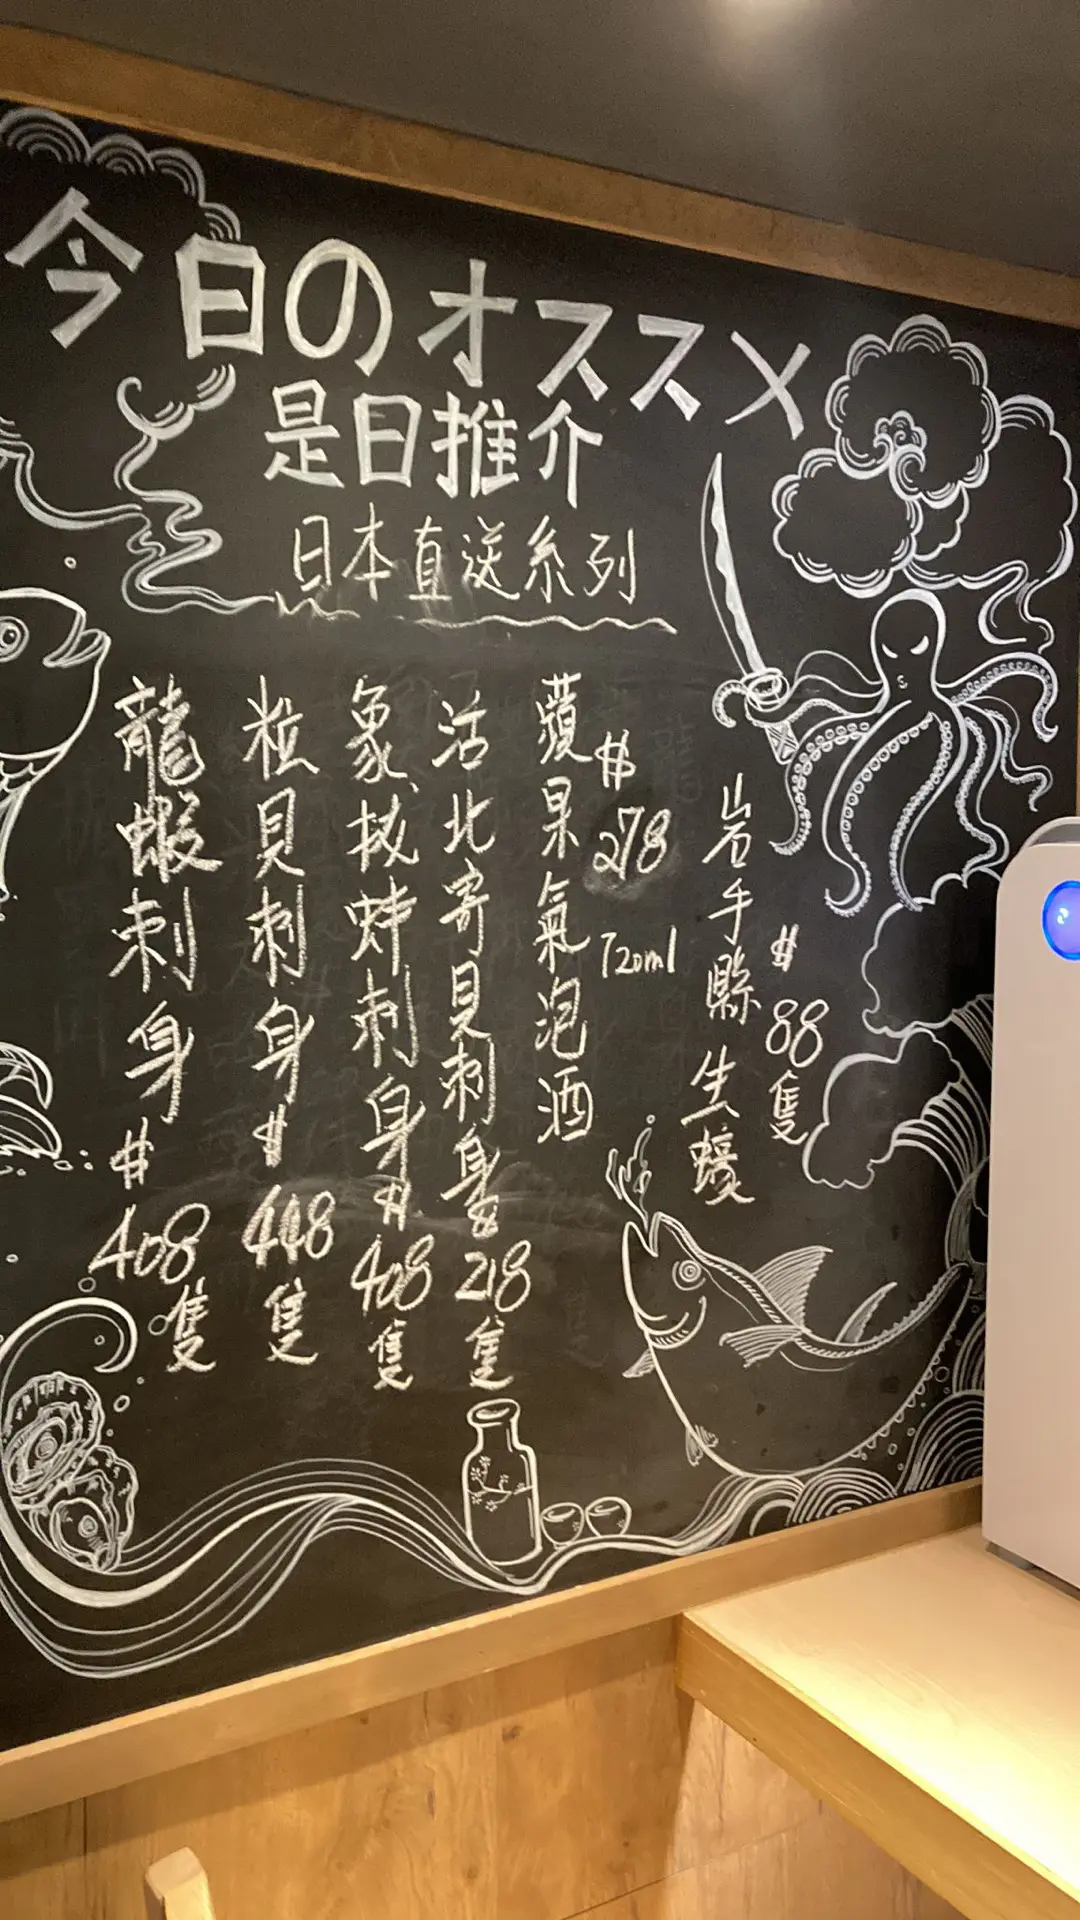 今日のオススメ
是日推介
日本直送系列
岩手縣生蠔
$88隻
蘋果氣泡酒
$278
720ml
活北寄貝刺身$218隻
象拔蚌刺身$408隻
粒貝刺身$448隻
龍蝦刺身$408隻